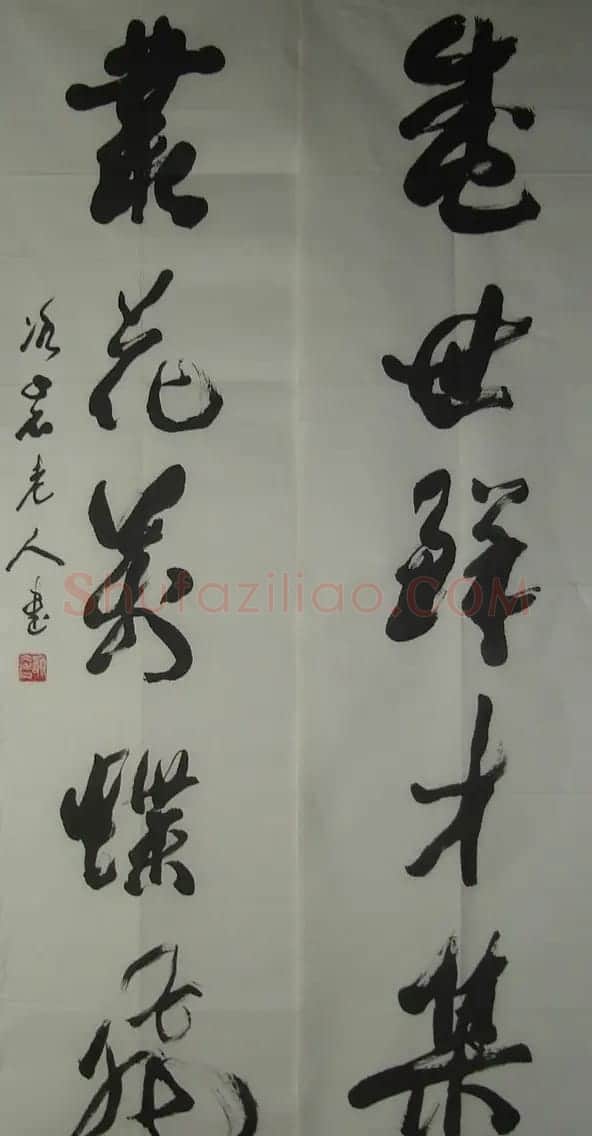 盛世群才集
叢花萬蝶飛
冷岩老人書
Shufaziliao.COM